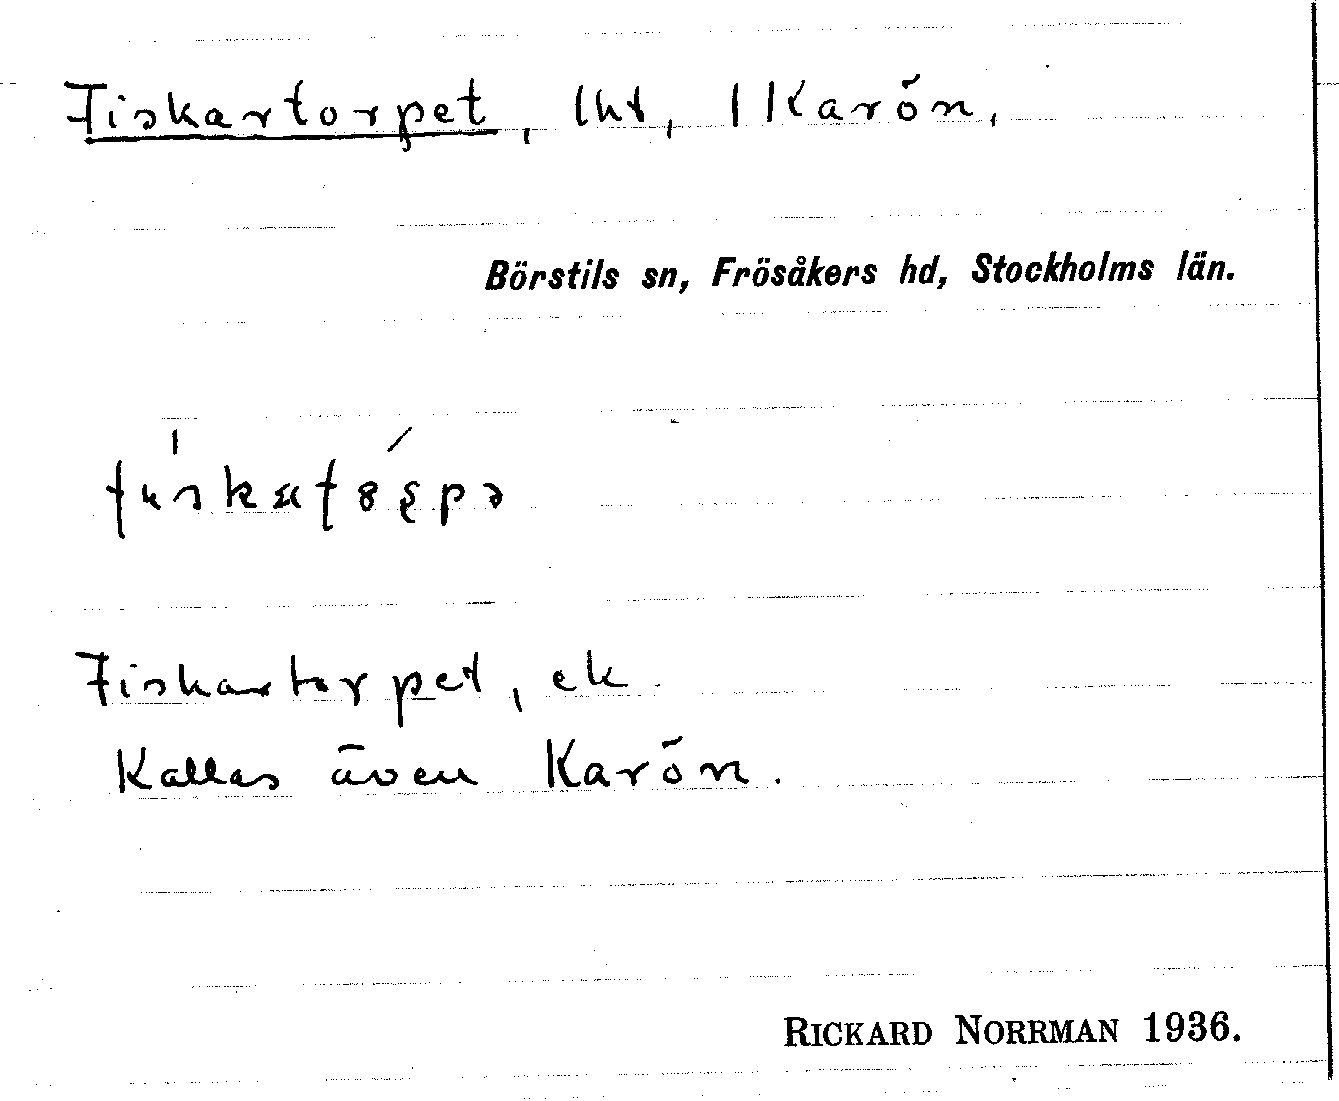 Fiskartorpet, lht, 1 Karön,
Börstils sn, Frösåkers hd, Stockholms län.
Fiskartorpet, ek
Kallas även Karön.
RICKARD NORRMAN 1936.